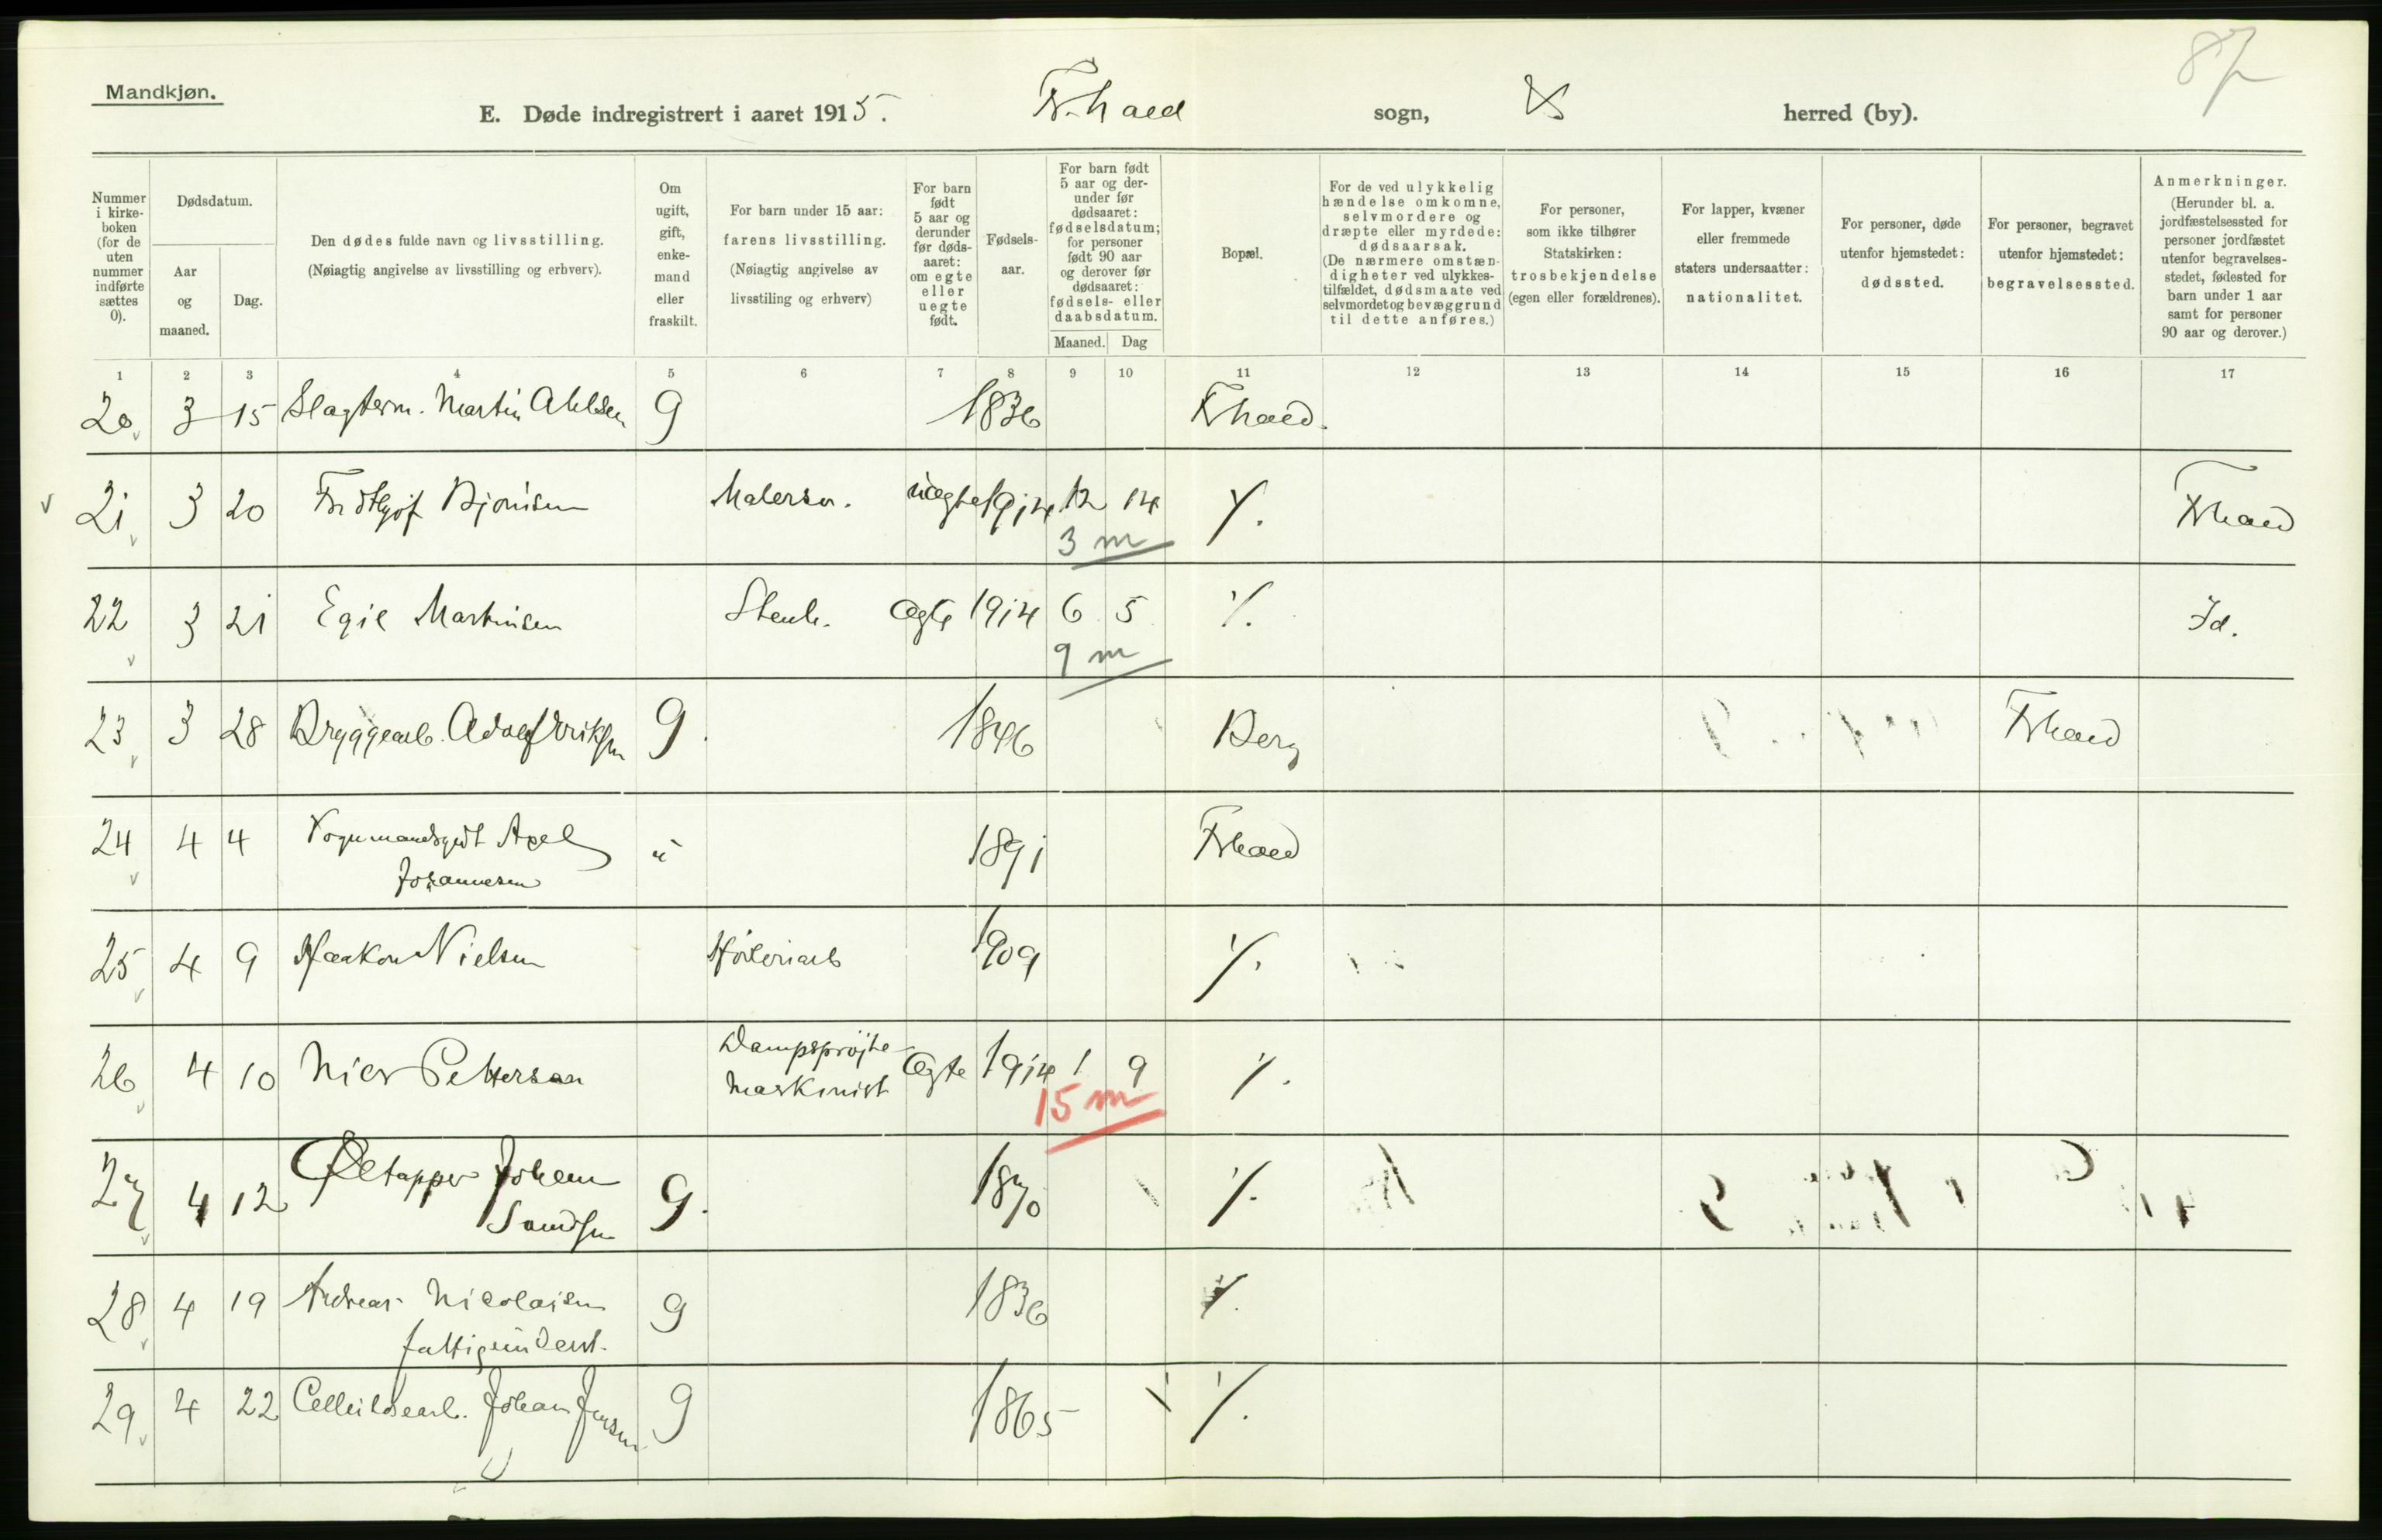 87
Mandkjøn.
E. Døde indregistrert i aaret 1915. Fr.hald sogn, herred (by).
Nummer i kirke-boken (for de uten nummer indførte sættes 0).
Dødsdatum.
Aar og maaned.
Dag.
Den dødes fulde navn og livsstilling.
(Nøiagtig angivelse av livsstilling og erhverv).
Om ugift, gift, enke-mand eller fraskilt.
For barn under 15 aar: farens livsstilling.
(Nøiagtig angivelse av livsstiling og erhverv)
For barn født 5 aar og derunder før døds-aaret: om egte eller uegte født.
Fødsels-aar.
For barn født 5 aar og der-under før dødsaaret: fødselsdatum; for personer født 90 aar og derover før dødsaaret: fødsels- eller daabsdatum.
Maaned. Dag
Bopæl.
For de ved ulykkelig hændelse omkomne, selvmordere og dræpte eller myrdede: dødsaarsak.
(De nærmere omstæn-digheter ved ulykkes-tilfældet, dødsmaate ved selvmordet og bevæggrund til dette anføres.)
For personer, som ikke tilhører Statskirken: trosbekjendelse (egen eller forældrenes).
For lapper, kvæner eller fremmede staters undersaatter: nationalitet.
For personer, døde utenfor hjemstedet: dødssted.
For personer, begravet utenfor hjemstedet: begravelsessted.
Anmerkninger.
(Herunder bl. a. jordfæstelsessted for personer jordfæstet utenfor begravelses-stedet, fødested for barn under 1 aar samt for personer 90 aar og derover.)
1 2 3 4 5 6 7 8 9 10 11 12 13 14 15 16 17
20 3 15 Slagterm. Martin Ahlsen g 1836 Frhald.
21 3 20 Fridthjof Bjørnsen Malersv. uægte 1914 12 14 ٪. Frhald
3 m
22 3 21 Egil Martinsen Stenh. ægte 1914 6 5 ٪. Id.
9 m
23 3 28 Bryggearb. Adolf Eriksen g. 1846 Berg Frhald
24 4 4 Vognmandsgut Axel u 1891 Frhald
Johannesen
25 4 9 Haakon Nielsen 1909 ٪.
26 4 10 Nils Pettersen Dampsprøite- ægte 1914 1 9 ٪.
maskinist
15 m
27 4 12 Øltapper Johan g. 1870 ٪.
28 4 19 Andreas Nicolaisen g 1836 ٪.
fattigunderst.
29 4 22 Cellulosearb. Johan Jensen g 1865 ٪.